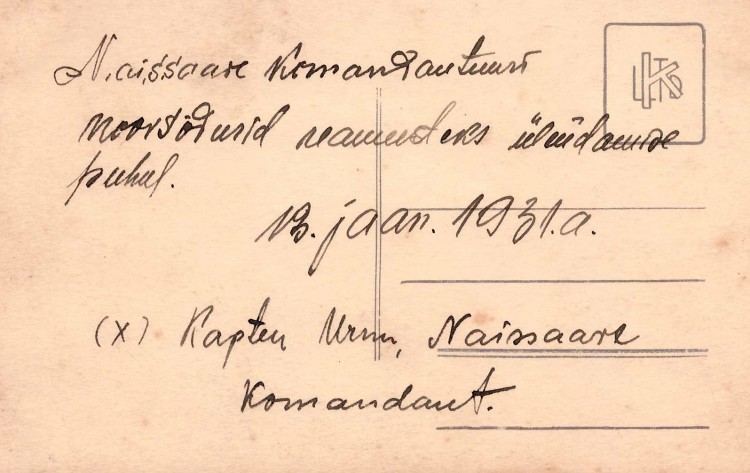 Naissaare Komandantuuri
noorsõdurid reameesteks üleüdamise
puhul.
13. jaan. 1931.a.
(X) Kapten Urm, Naissaare
Komandant.